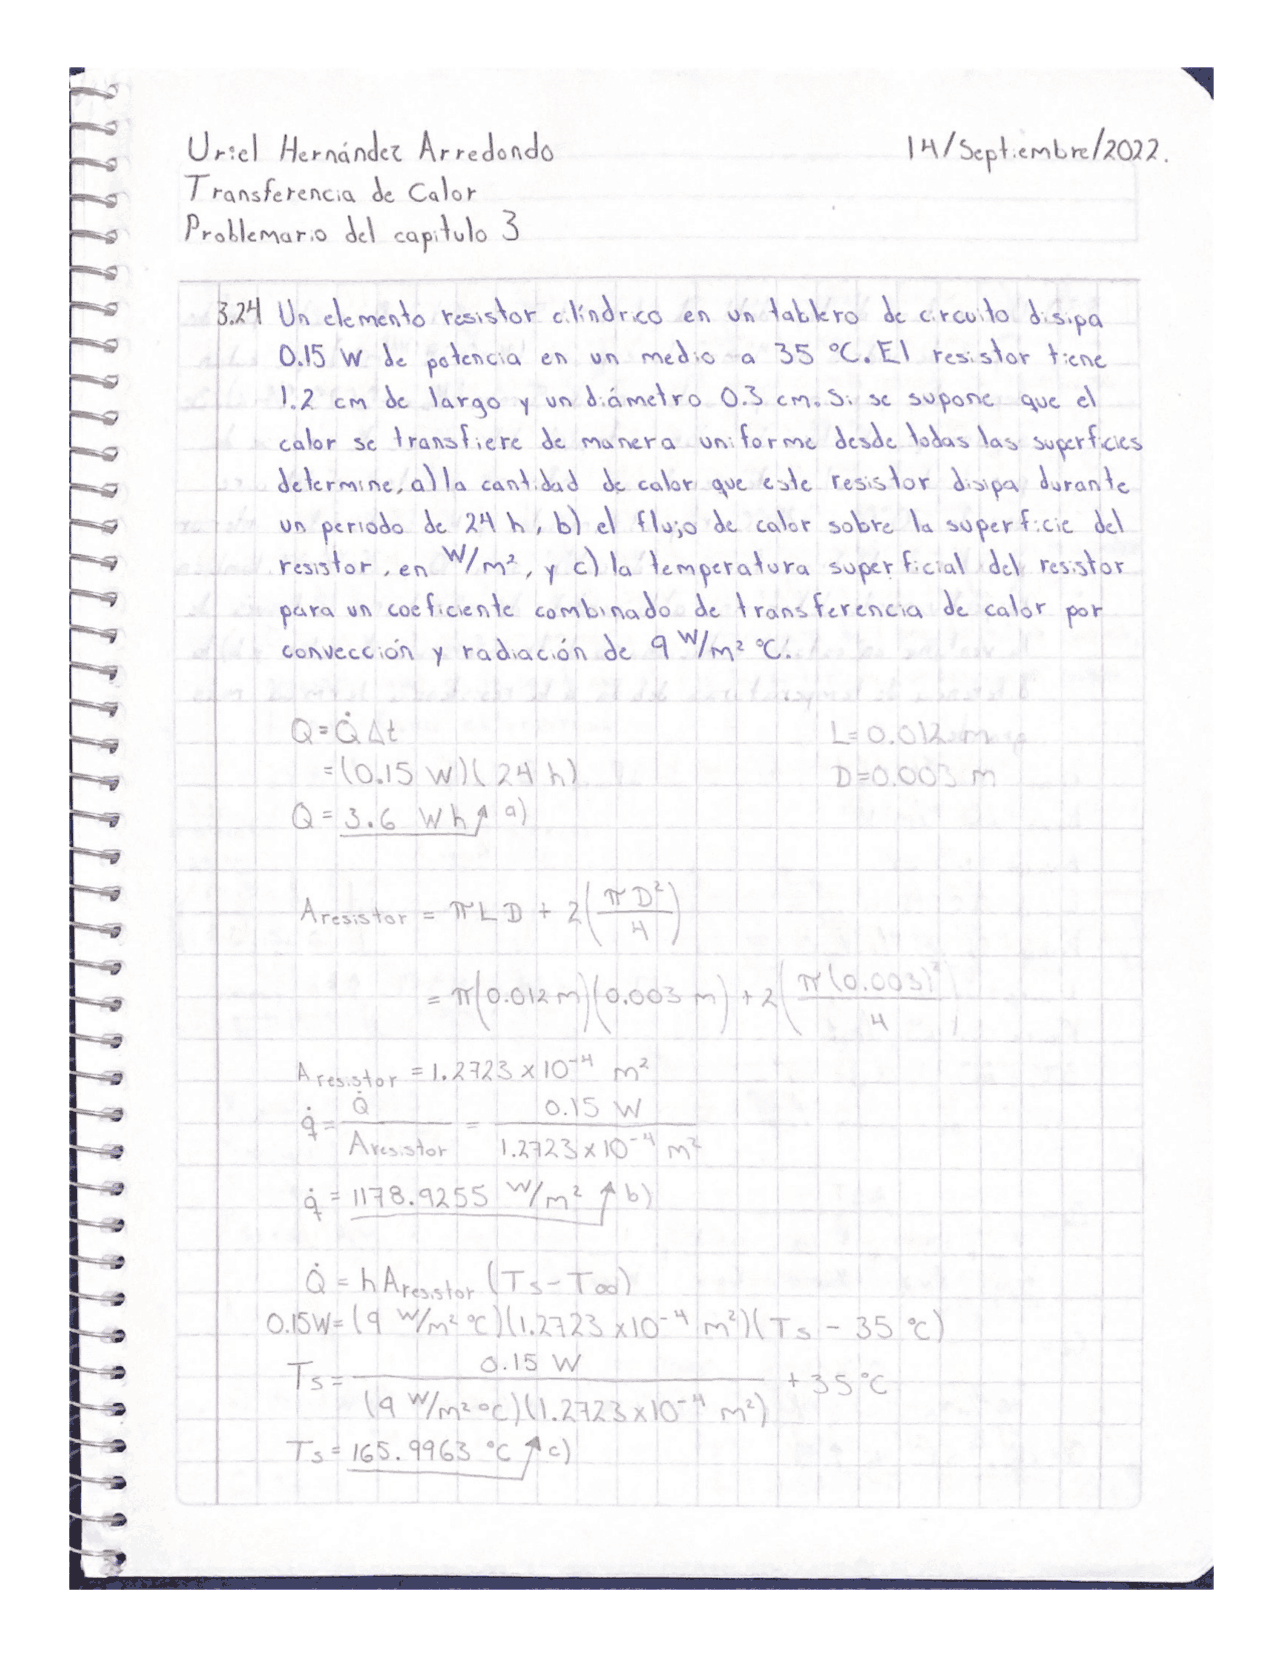 Uriel Hernández Arredondo
14/Septiembre/2022.
Transferencia de Calor
Problemario del capitulo 3
3.24 Un elemento resistor cilíndrico en un tablero de circuito disipa
0.15 W de potencia en un medio a 35 °C. El resistor tiene
1.2 cm de largo y un diámetro 0.3 cm. Si se supone que el
calor se transfiere de manera uniforme desde todas las superficies
determine, a) la cantidad de calor que este resistor disipa durante
un periodo de 24 h, b) el flujo de calor sobre la superficie del
resistor, en W/m², y c) la temperatura superficial del resistor
para un coeficiente combinado de transferencia de calor por
convección y radiación de 9 W/m² °C.
Q = Q̇ Δt
L = 0.012 m
= (0.15 W)(24 h)
D = 0.003 m
Q = 3.6 W h a)
Aresistor = π L D + 2(π D²/4)
= π(0.012 m)(0.003 m) + 2(π(0.003)²/4)
Aresistor = 1.2723 x 10⁻⁴ m²
q̇ = Q̇/Aresistor = 0.15 W/1.2723 x 10⁻⁴ m²
q̇ = 1178.9255 W/m² b)
Q̇ = h Aresistor (Ts - T∞)
0.15 W = (9 W/m² °C)(1.2723 x 10⁻⁴ m²)(Ts - 35 °C)
Ts = 0.15 W/(9 W/m² °C)(1.2723 x 10⁻⁴ m²) + 35 °C
Ts = 165.9963 °C c)